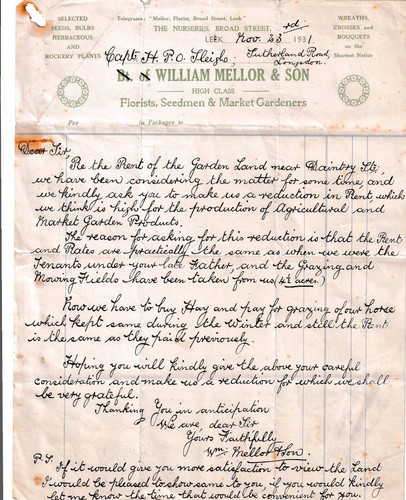 SELECTED
SEEDS, BULBS
HERBACEOUS
AND
ROCKERY PLANTS
Telegrams: "Mellor, Florist, Broad Street, Leek"
THE NURSERIES, BROAD STREET,
LEEK Nov. 23rd 1931
WREATHS,
CROSSES and
BOUQUETS
on the
Shortest Notice
Capt. H. P. O. Sleigh,
Sutherland Road,
Longsdon.
WILLIAM MELLOR & SON
HIGH CLASS
Florists, Seedmen & Market Gardeners
Per in Packages to
Dear Sir,
Re the Rent of the Garden Land near Daintry St;
we have been considering the matter for some time, and
we kindly ask you to make us a reduction in Rent, which
we think is high for the production of Agricultural and
Market Garden Produce.
The reason for asking for this reduction is that the Rent
and Rates are practically the same as when we were the
Tenants under your late Father, and the Grazing and
Mowing Fields have been taken from us (4½ acres.)
Now we have to buy Hay and pay for grazing of our horse
which kept same during the Winter and still the Rent
is the same as they paid previously.
Hoping you will kindly give the above your careful
consideration and make us a reduction for which we shall
be very grateful.
Thanking You in anticipation
We are, dear Sir
Yours Faithfully
Wm. Mellor & Son.
P.S. If it would give you more satisfaction to view the Land
I would be pleased to show same to you, if you would kindly
let me know the time that would be convenient for you.